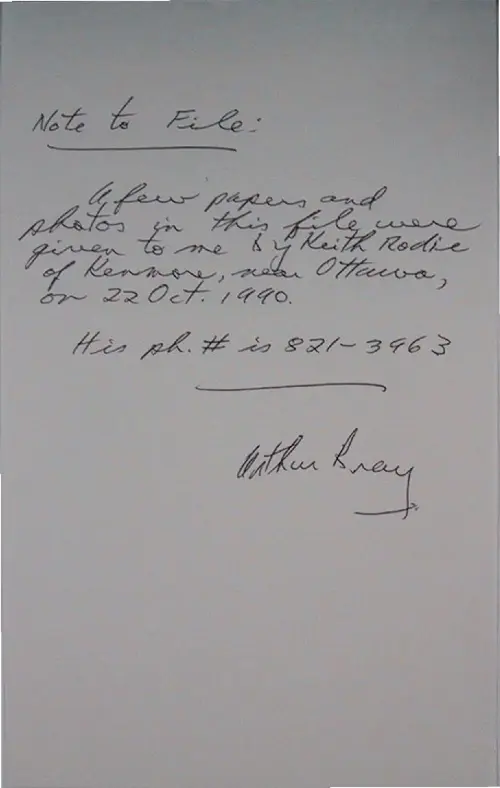 Note to File:
A few papers and
photos in this file were
given to me by Keith Rodie
of Kenmore, near Ottawa,
on 22 Oct. 1990.
His ph. # is 821-3963
Arthur Bray